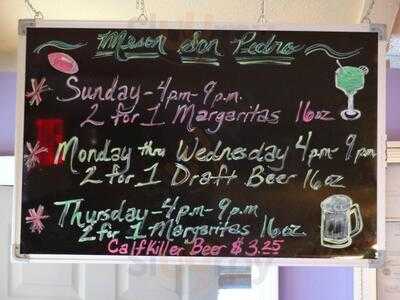 Meson San Pedro
Sunday - 4pm - 9pm.
2 for 1 Margaritas 16oz
Monday thru Wednesday 4pm - 9pm
2 for 1 Draft Beer 16oz
Thursday - 4pm - 9pm
2 for 1 Margaritas 16oz.
CalfKiller Beer $3.25